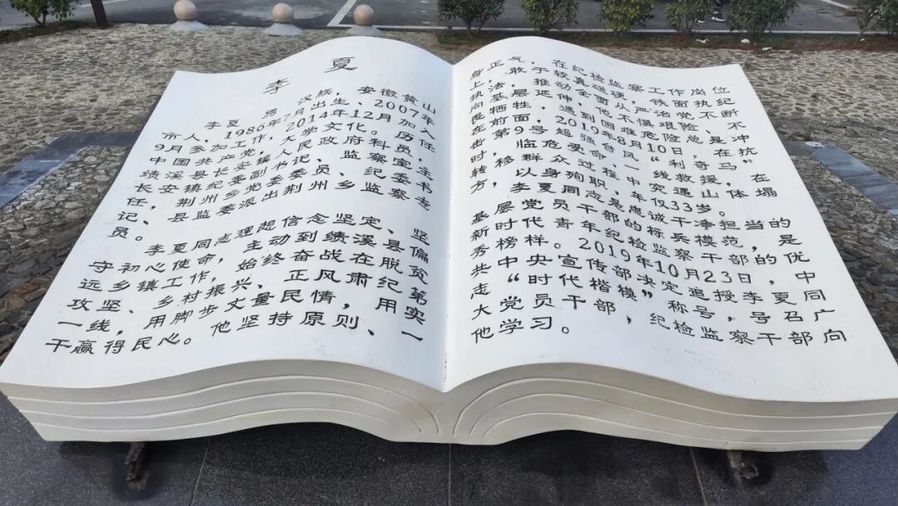 李夏
李夏，男，汉族，安徽黄山
市人，1986年7月出生，2007年
9月参加工作，2014年12月入
中国共产党，大学文化。历任
绩溪县长安镇人民政府科员、
长安镇纪委副书记、监察室主
任，荆州乡党委委员、纪委书
记、县监委派出荆州乡监察专
员。
李夏同志理想信念坚定、坚
守初心使命，主动到绩溪县偏
远乡镇工作，始终奋战在脱贫
攻坚、乡村振兴、正风肃纪第
一线，用脚步丈量民情，用实
干赢得民心。他坚持原则、一
身正气，在纪检监察工作岗位
上，敢于较真碰硬、铁面执纪
执法，推动全面从严治党不断
向基层延伸，他不惧艰险、不
畏牺牲，遇到困难危险总是冲
在前面，2019年8月10日，在抗
击第9号超强台风“利奇马”
时，临危受命，一线救援，在
转移群众过程中突遇山体塌
方，以身殉职，年仅33岁。
李夏同志是忠诚干净担当的
基层党员干部的标兵模范，是
新时代青年纪检监察干部的优
秀榜样。2019年10月23日，中
共中央宣传部决定追授李夏同
志“时代楷模”称号，号召广
大党员干部，纪检监察干部向
他学习。